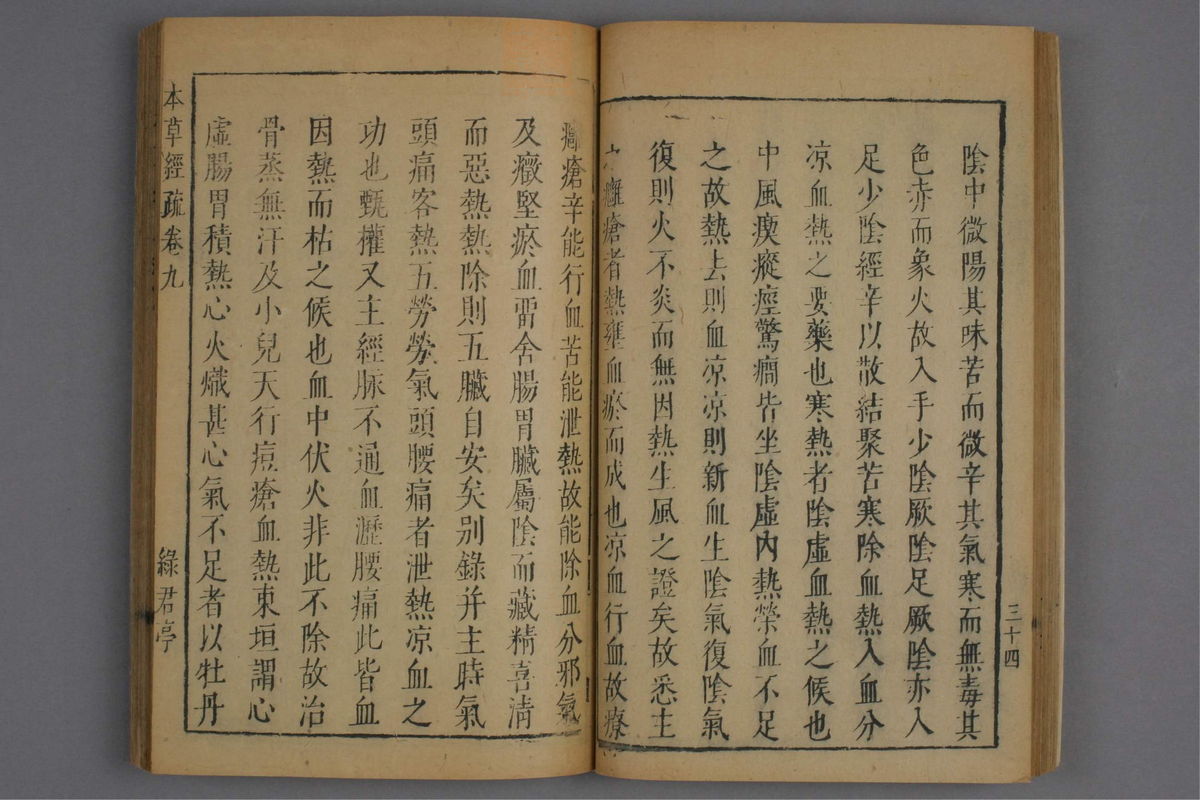 陰中微陽其味苦而微辛其氣寒而無毒其
色赤而象火故入手少陰厥陰足厥陰亦入
足少陰經辛以散結聚苦寒除血熱入血分
凉血熱之要藥也寒熱者陰虛血熱之候也
中風瘈瘲痙驚癇皆坐陰虛內熱榮血不足
之故熱去則血凉凉則新血生陰氣復陰氣
復則火不炎而無因熱生風之證矣故悉主
之癰瘡者熱壅血瘀而成也凉血行血故療
三十四
癰瘡辛能行血苦能泄熱故能除血分邪氣
及癥堅瘀血畱舍腸胃臟屬陰而藏精喜清
而惡熱熱除則五臟自安矣别錄并主時氣
頭痛客熱五勞勞氣頭腰痛者泄熱凉血之
功也甄權又主經脉不通血瀝腰痛此皆血
因熱而枯之候也血中伏火非此不除故治
骨蒸無汗及小兒天行痘瘡血熱東垣謂心
虛腸胃積熱心火熾甚心氣不足者以牡丹
本草經疏 卷九
綠君亭